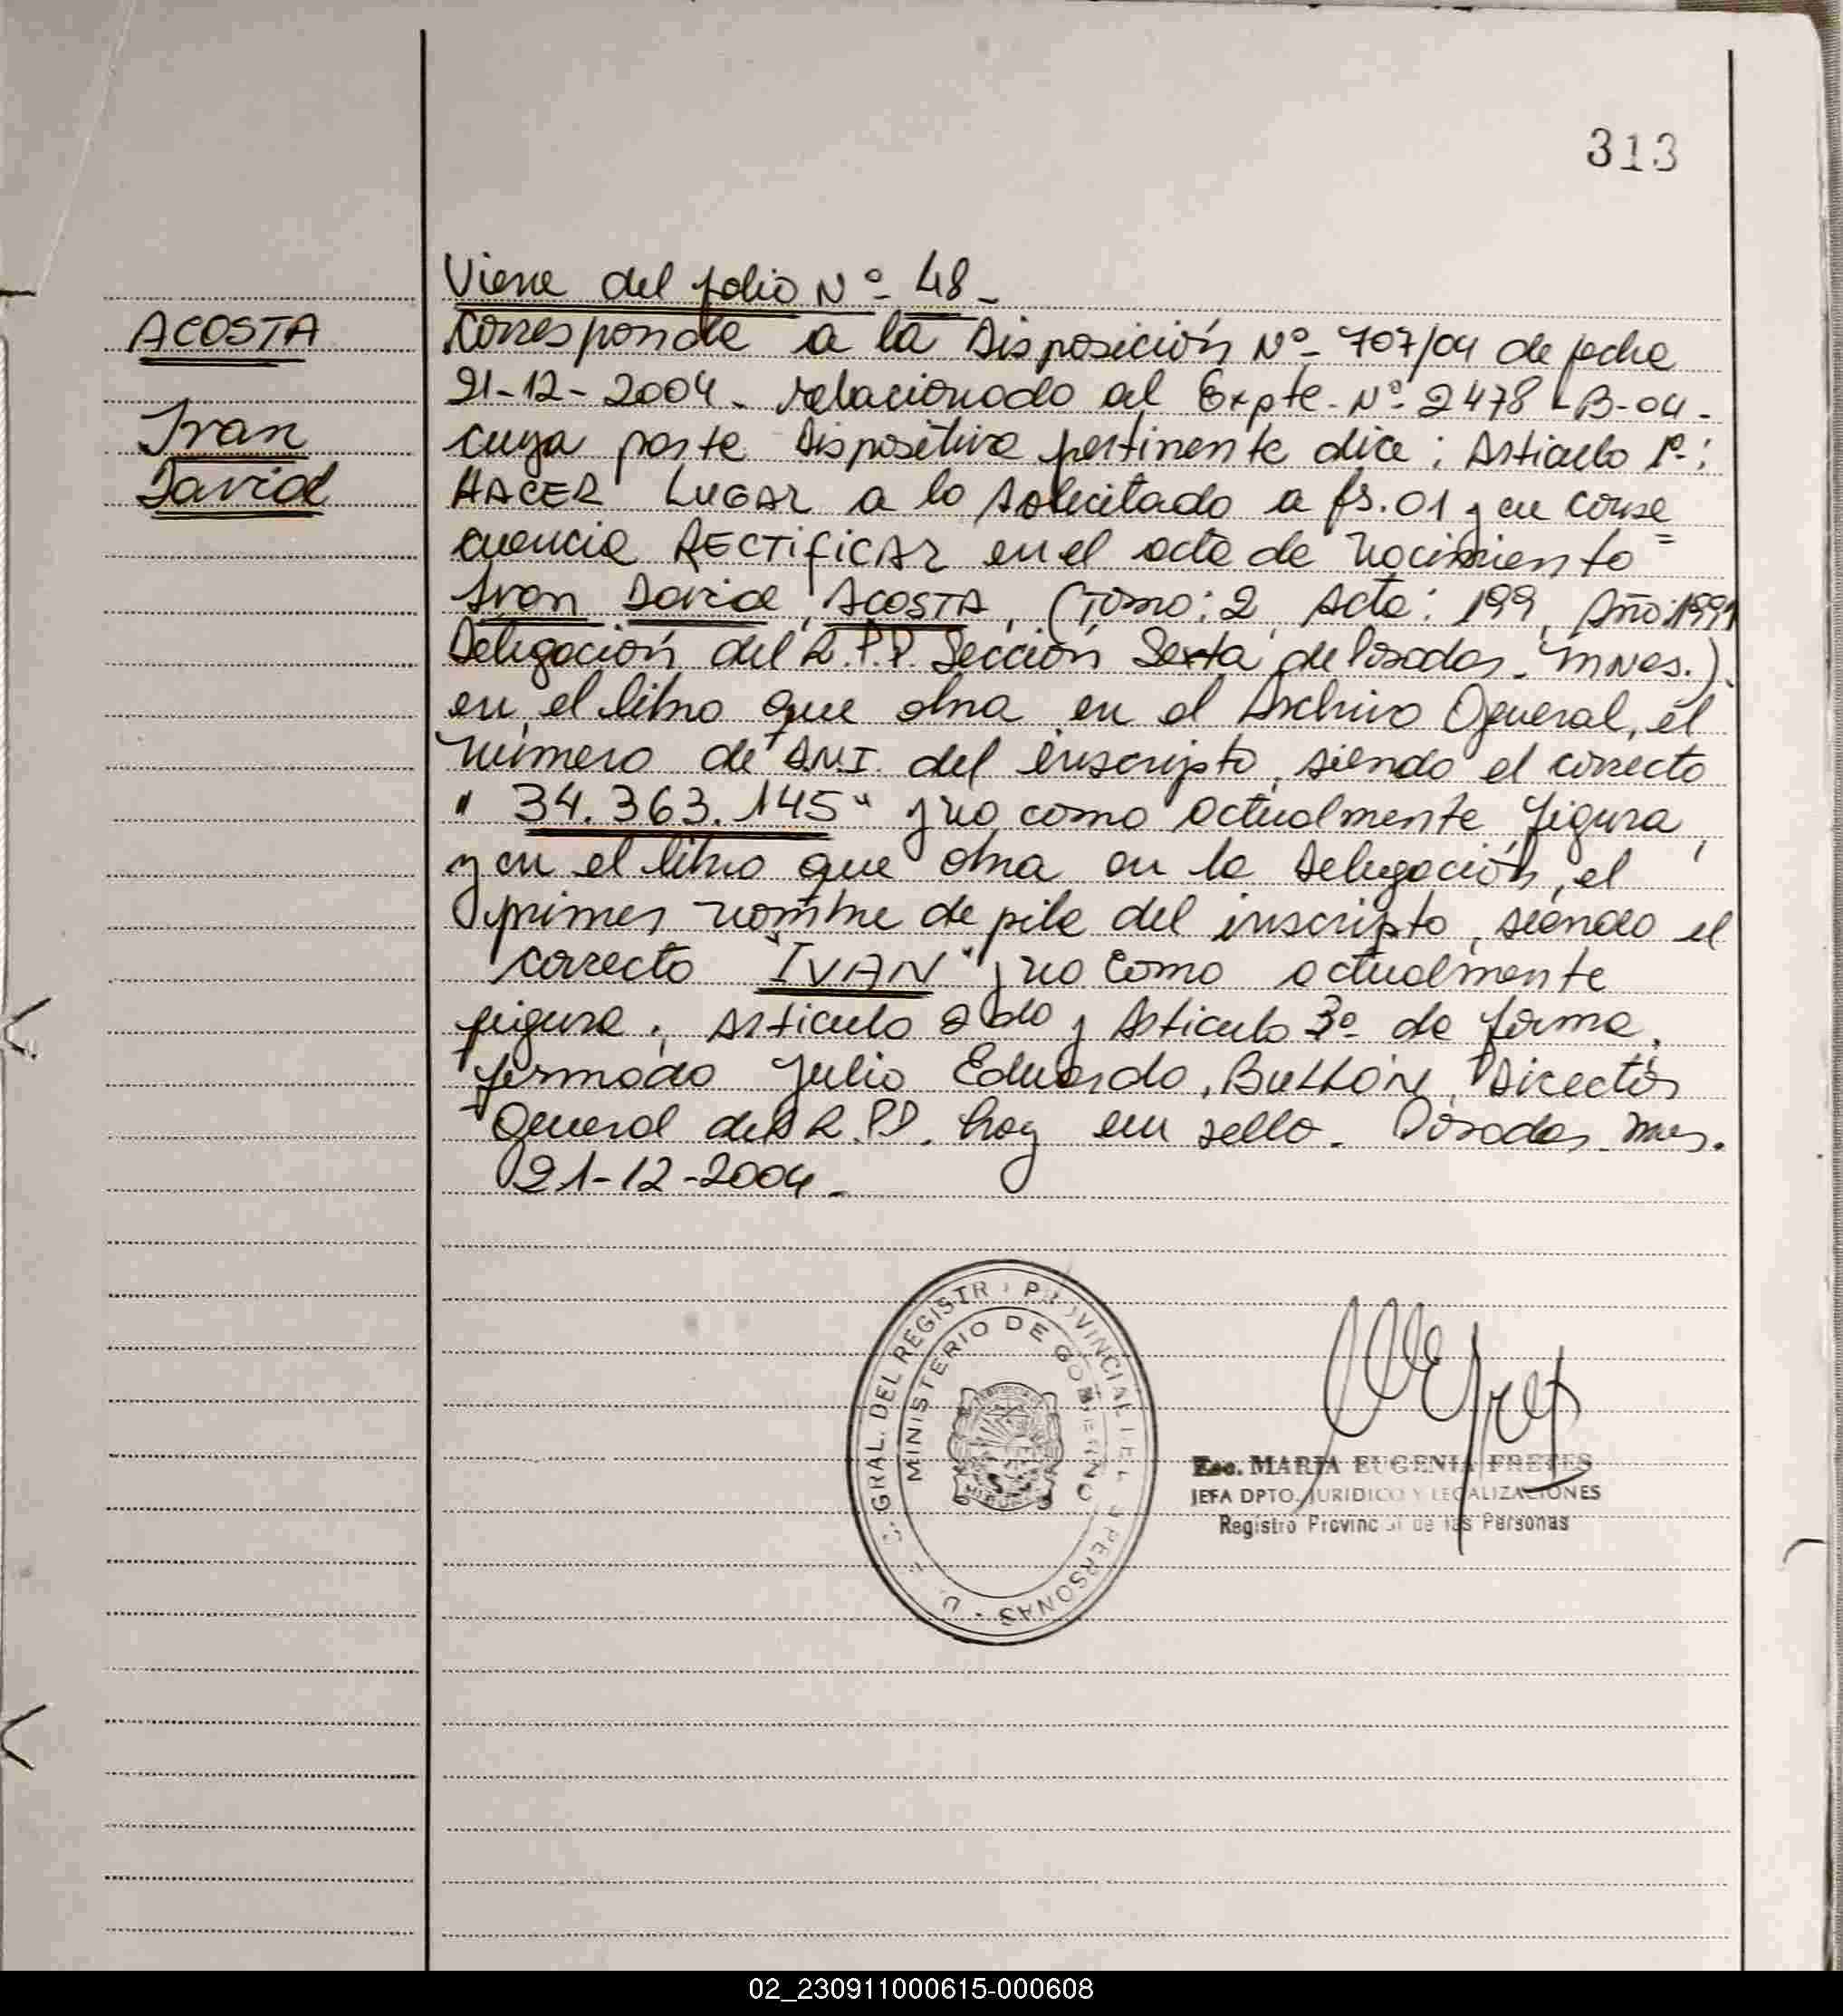 313
Viene del folio Nº 48_
ACOSTA
Corresponde a la Disposición Nº 707/04 de fecha
Ivan
21-12-2004_ relacionado al Expte. Nº 2478-B-04_
cuya parte Dispositiva pertinente dice; Articulo 1º:
David
HACER LUGAR a lo solicitado a fs. 01 y en conse
cuencia RECTIFICAR en el acta de nacimiento
Ivan David, ACOSTA, (Tomo: 2, Acta: 199, Año: 1991
Delegación del R.P.P. Sección Sexta de Posadas, Mnes.)
en el libro que obra en el Archivo General, el
número de DNI. del inscripto, siendo el correcto
" 34.363.145" y no como actualmente figura,
y en el libro que obra en la Delegación, el
primer nombre de pila del inscripto, siendo el
correcto "IVAN" y no como actualmente
figura. Articulo 2do y Articulo 3º de forma.
firmado Julio Eduardo, BULLÓN, Director
General del R.P.P. hay un sello. Posadas Mnes.
21-12-2004_
GRAL. DEL REGISTRO PROVINCIAL DE LAS PERSONAS
MINISTERIO DE GOBIERNO
Esc. MARIA EUGENIA FRETES
JEFA DPTO. JURIDICO Y LEGALIZACIONES
Registro Provincial de las Personas
02_230911000615-000608